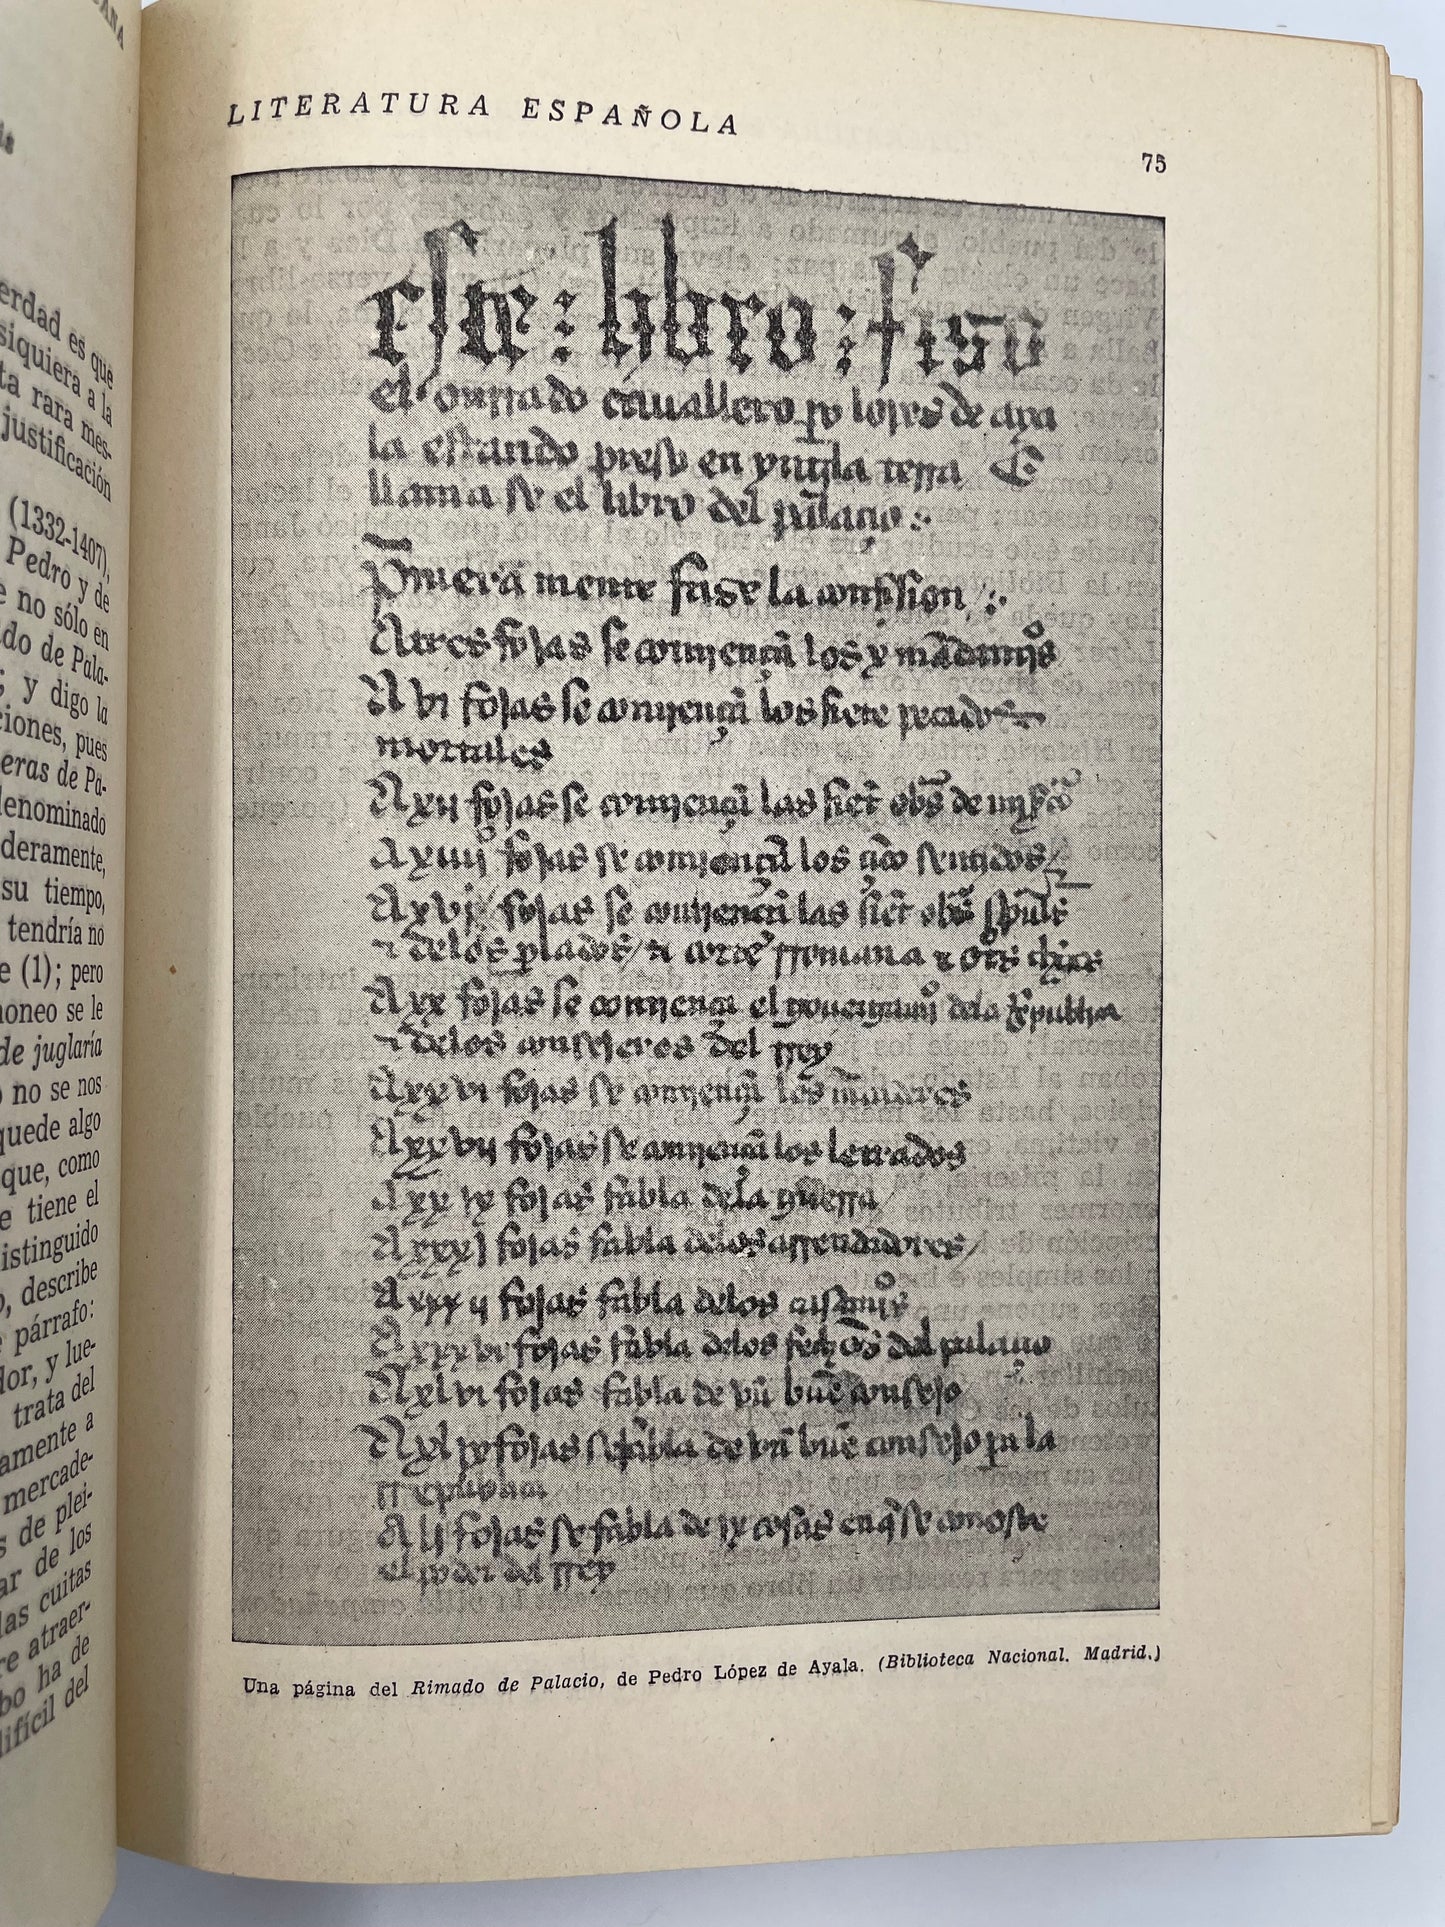 erdad es que
siquiera a la
ta rara mes-
justificación
(1332-1407),
Pedro y de
e no sólo en
do de Pala-
; y digo la
ciones, pues
eras de Pa-
denominado
deramente,
su tiempo,
tendría no
e (1); pero
noneo se le
de juglaría
o no se nos
quede algo
que, como
e tiene el
istinguido
o, describe
e párrafo:
dor, y lue-
trata del
amente a
mercade-
s de plei-
ar de los
las cuitas
re atraer-
bo ha de
difícil del
LITERATURA ESPAÑOLA
75
este : libro : fiso
el onrrado cauallero po lopes de aya
la estando preso en ynglaterra E
llama se el libro del palaçio
Primera mente fase la confision
A tres fojas se comiençan los x mandamios
A vi fojas se comiençan los siete pecados
mortales
A xii fojas se comiençan las siet obs de
A xiiij fojas se comiençan los çinco sentidos
A xvi fojas se comiençan las siet obs spuales
de los plados
A xx fojas se comiença el de la
de los consejeros del rrey
A xxvi fojas se comiençan los
A xxvii fojas se comiençan los letrados
A xxix fojas fabla de la guerra
A xxxj fojas fabla delos arrendadores
A xxxii fojas fabla delos
A xxxvi fojas fabla delos fechos del palaçio
A xlvi fojas fabla de vn buen consejo
A xlix fojas se fabla de vn buen consejo pa la
A lj fojas se fabla de ix cosas en q se conosçe
el poder del rrey
Una página del Rimado de Palacio, de Pedro López de Ayala. (Biblioteca Nacional. Madrid.)